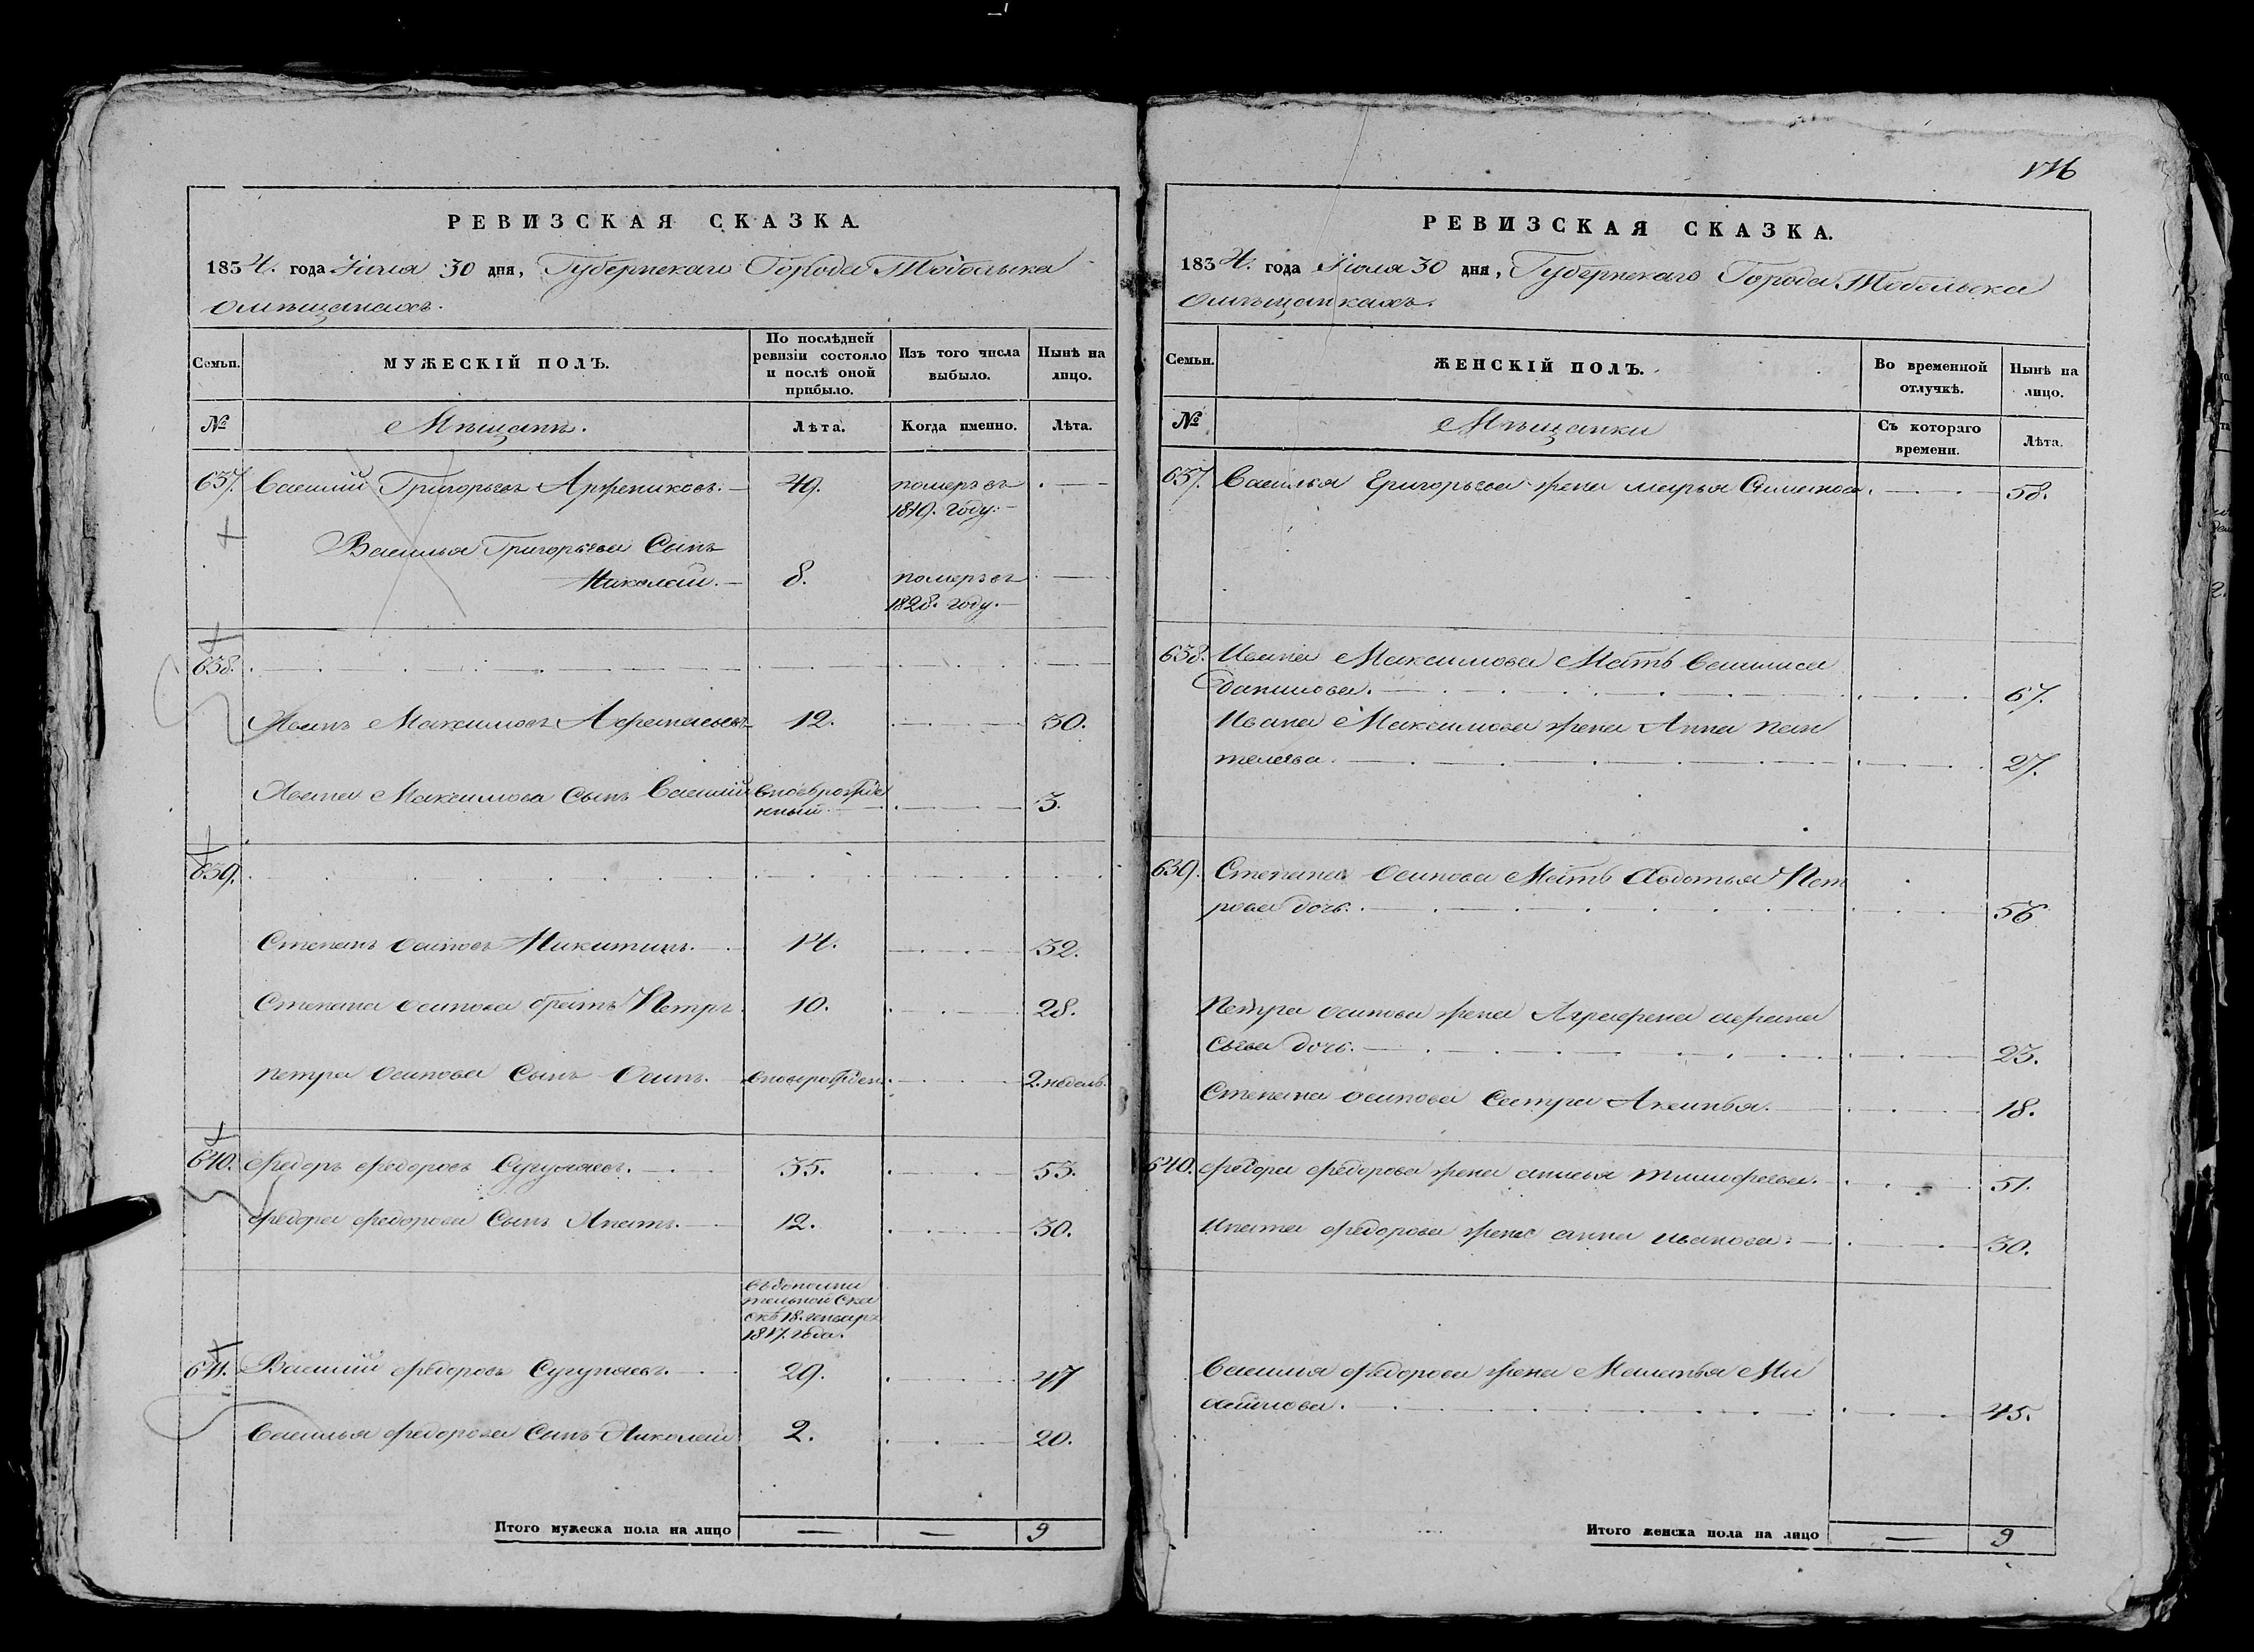 РЕВИЗСКАЯ СКАЗКА.
1834. года Iюля 30 дня, Губернскаго Города Тобольска
омѣщанахъ.
Семьи.
МУЖЕСКІЙ ПОЛЪ.
По послѣдней ревизіи состояло и послѣ оной прибыло.
Изъ того числа выбыло.
Нынѣ на лицо.
№
Мѣщанъ.
Лѣта.
Когда именно.
Лѣта.
637. Василий Григорьевъ 49. померъ въ
1819. году.
Василья Григорьева Сынъ
Николай. 8. померъ въ
1828. году.
638.
Иванъ Максимовъ Афанасьевъ 12. 30.
Ивана Максимова Сынъ Василий вновьрожде 3.
нный
639.
Степанъ Осиповъ Никитинъ. 14. 32.
Степана Осипова братъ Петръ 10. 28.
Петра Осипова Сынъ Осипъ. вновьрожден. 2. недель.
640. Федоръ Федоровъ 35. 53.
Федора Федорова Сынъ Ипатъ. 12. 30.
въдополни
тельной Ска
скѣ 18. генваря
1817. года.
641. Василий Федоровъ 29. 47
Василья Федорова Сынъ Николай 2. 20.
Итого мужеска пола на лицо — — 9
176
РЕВИЗСКАЯ СКАЗКА.
1834. года Iюля 30 дня, Губернскаго Города Тобольска
омѣщанкахъ.
Семьи.
ЖЕНСКІЙ ПОЛЪ.
Во временной отлучкѣ.
Нынѣ на лицо.
№
Мѣщанки
Съ котораго времени.
Лѣта.
637. Василья Григорьева жена Марья 58.
638. Ивана Максимова Мать Василиса
Данилова. 67.
Ивана Максимова жена Анна Пан
телеева. 27.
639. Степана Осипова Мать Авдотья Пет
рова дочь. 56
Петра Осипова жена Аграфена Афана
сьева дочь. 23.
Степана Осипова Сестра Аксинья. 18.
640. Федора Федорова жена Анисья Тимофеева. 51.
Ипата Федорова жена Анна Иванова. 30.
Василия Федорова жена Маланья Ми
хайлова. 45.
Итого женска пола на лицо — 9